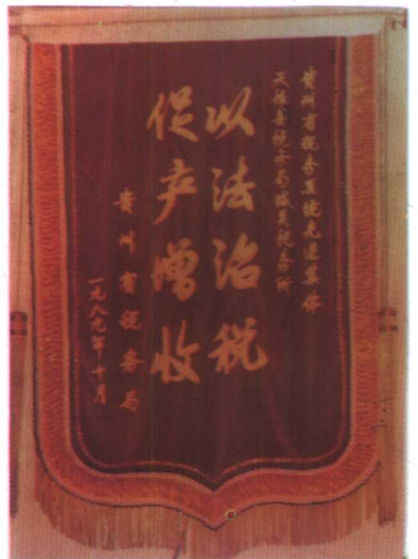 贵州省税务系统先进集体
天柱县税务局城关税务所
以法治税
促产增收
贵州省税务局
一九八九年十月